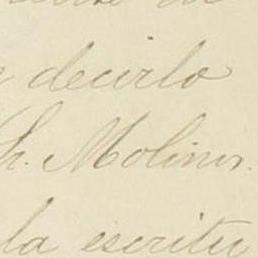 decirlo
Sr. Molinos.
la escritu